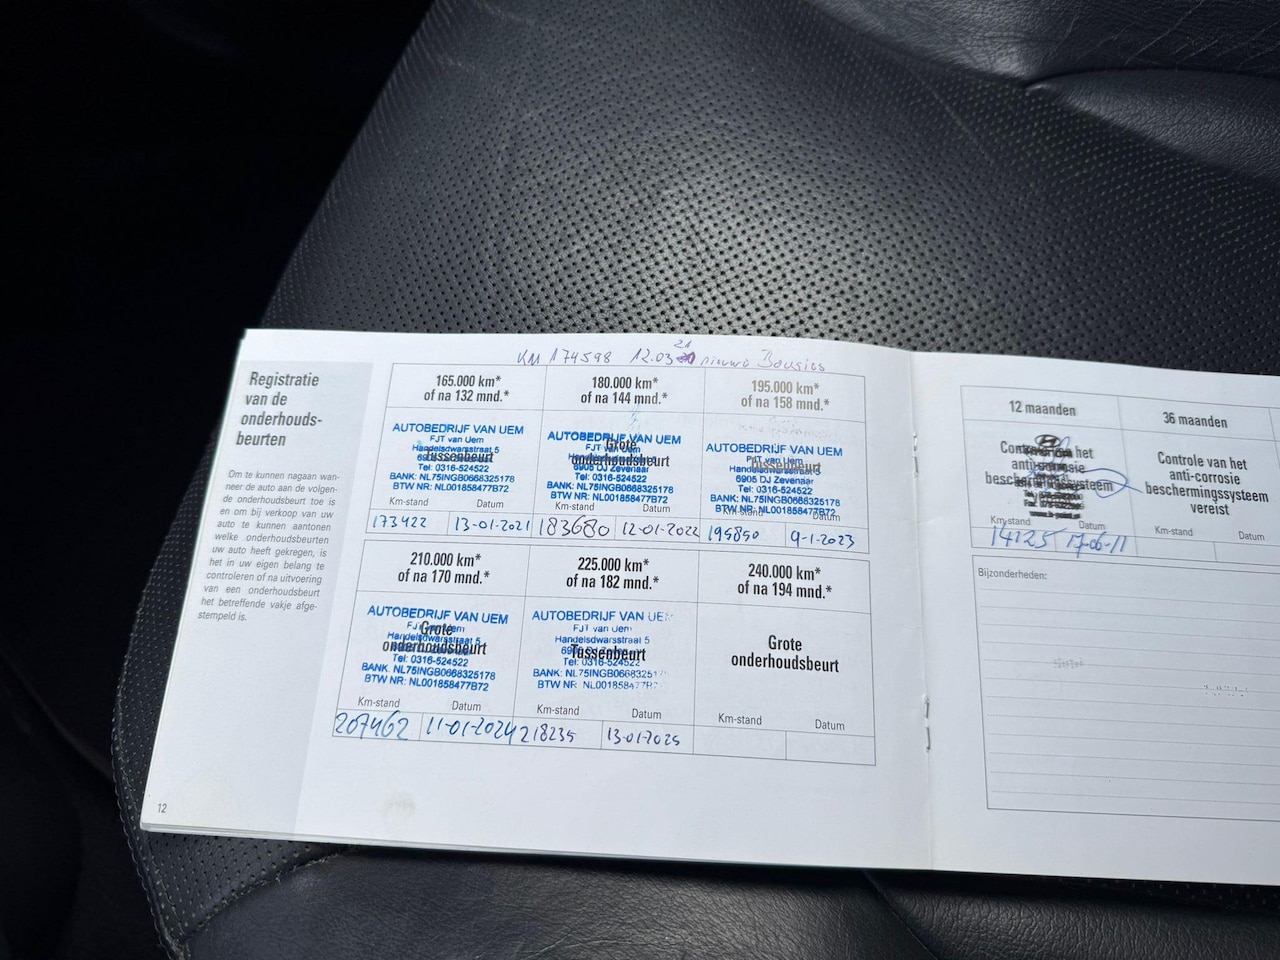 KM 174598 12.03 21 nieuwe Bougies
Registratie
van de
onderhouds-
beurten
Om te kunnen nagaan wan-
neer de auto aan de volgen-
de onderhoudsbeurt toe is
en om bij verkoop van uw
auto te kunnen aantonen
welke onderhoudsbeurten
uw auto heeft gekregen, is
het in uw eigen belang te
controleren of na uitvoering
van een onderhoudsbeurt
het betreffende vakje afge-
stempeld is.
165.000 km*
of na 132 mnd.*
AUTOBEDRIJF VAN UEM
FJT van Uem
Handelsdwarsstraat 5
Tussenbeurt
Tel: 0316-524522
BANK: NL75INGB0668325178
BTW NR: NL001858477B72
Km-stand Datum
173422 13-01-2021
180.000 km*
of na 144 mnd.*
AUTOBEDRIJF VAN UEM
FJT van Uem
Grote
onderhoudsbeurt
6905 DJ Zevenaar
Tel: 0316-524522
BANK: NL75INGB0668325178
BTW NR: NL001858477B72
Km-stand Datum
183680 12-01-2022
195.000 km*
of na 158 mnd.*
AUTOBEDRIJF VAN UEM
FJT van Uem
Handelsdwarsstraat 5
Tussenbeurt
6905 DJ Zevenaar
Tel: 0316-524522
BANK: NL75INGB0668325178
BTW NR: NL001858477B72
Km-stand Datum
195850 9-1-2023
210.000 km*
of na 170 mnd.*
AUTOBEDRIJF VAN UEM
FJT van Uem
Grote
Handelsdwarsstraat 5
onderhoudsbeurt
Tel: 0316-524522
BANK: NL75INGB0668325178
BTW NR: NL001858477B72
Km-stand Datum
207462 11-01-2024
225.000 km*
of na 182 mnd.*
AUTOBEDRIJF VAN UEM
FJT van Uem
Handelsdwarsstraat 5
Tussenbeurt
Tel: 0316-524522
BANK: NL75INGB06683251
BTW NR: NL001858477B7
Km-stand Datum
218235 13-01-2025
240.000 km*
of na 194 mnd.*
Grote
onderhoudsbeurt
Km-stand Datum
12
12 maanden
Controle van het
anti-corrosie
beschermingssysteem
Km-stand Datum
14125 17-06-11
36 maanden
Controle van het
anti-corrosie
beschermingssysteem
vereist
Km-stand Datum
Bijzonderheden: